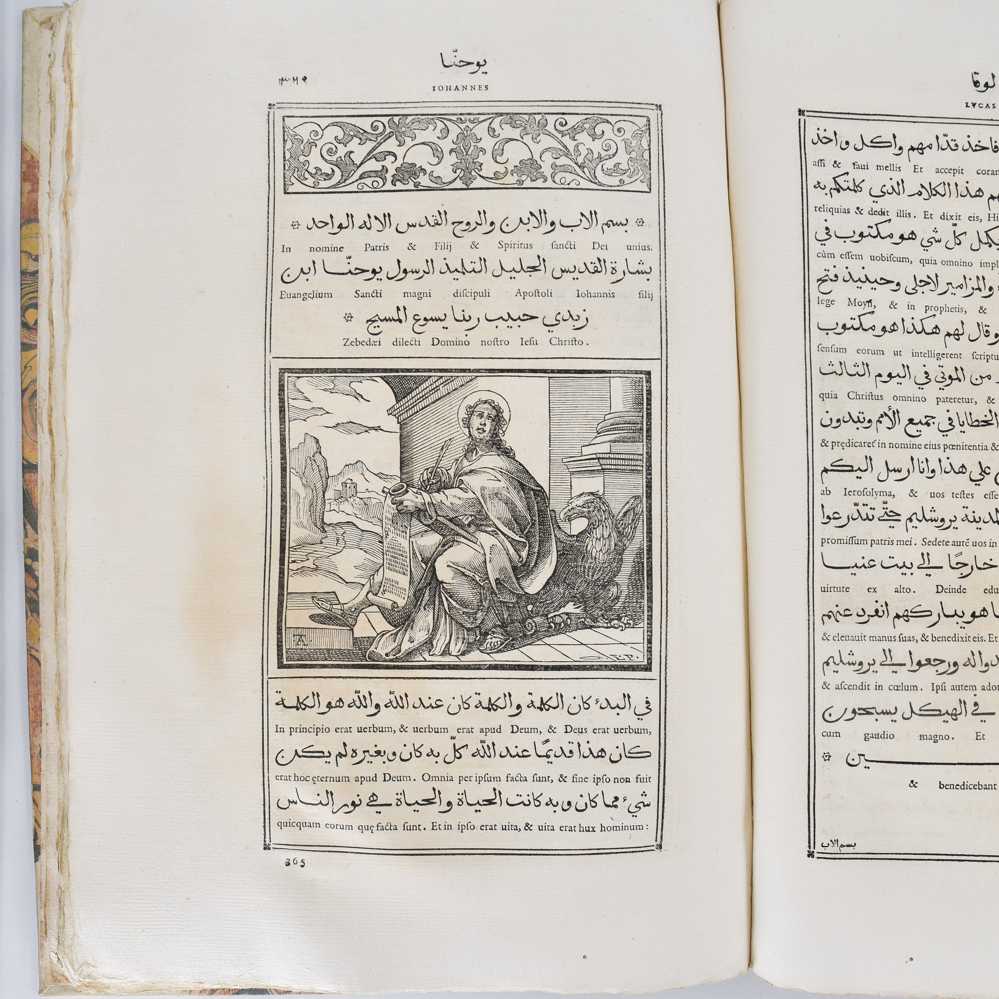 لوقا
LVCAS
فاخذ قدّامهم واكل واخذ
assi & faui mellis Et accepit coram
هم هذا الكلام الذي كلمتكم به
reliquias & dedit illis. Et dixit eis, Hi
يكمل كلّ شي هو مكتوب في
cùm essem uobiscum, quia omnino impl
والمزامير لاجلي وحينيذ فتح
lege Moysi, & in prophetis, &
وقال لهم هكذا هو مكتوب
sensum eorum ut intelligerent scriptu
من الموتي في اليوم الثالث
quia Christus omnino pateretur, &
الخطايا في جميع الأمم وتبدون
& prędicares in nomine eius pœnitentia &
علي هذا وانا ارسل اليكم
ab Ierosolyma, & uos testes esse
المدينة يروشليم حتّي تتدّرعوا
promissum patris mei. Sedete autē uos in
خارجًا الي بيت عنيا
uirtute ex alto. Deinde edu
ما هو يباركهم انفرد عنهم
& eleuauit manus suas, & benedixit eis. Et
دوا له ورجعوا الي يروشليم
& ascendit in cœlum. Ipsi autem ador
في الهيكل يسبحون
cum gaudio magno. Et
ـين
& benedicebant
بسم الاب
يوحنّا
٣٦٩
IOHANNES
بسم الاب والابن والروح القدس الاله الواحد
In nomine Patris & Filij & Spiritus sancti Dei unius.
بشارة القديس الجليل التليذ الرسول يوحنّا ابن
Euangelium Sancti magni discipuli Apostoli Iohannis filij
زبدي حبيب ربنا يسوع المسيح
Zebedæi dilecti Domino nostro Iesu Christo.
في البدء كان الكلمة والكلمة كان عند اللّه واللّه هو الكلمة
In principio erat uerbum, & uerbum erat apud Deum, & Deus erat uerbum,
كان هذا قديمًا عند اللّه كلّ به كان وبغيره لم يكن
erat hoc ęternum apud Deum. Omnia per ipsum facta sunt, & sine ipso non fuit
شيء مما كان وبه كانت الحياة والحياة هي نور الناس
quicquam eorum quę facta sunt. Et in ipso erat uita, & uita erat hux hominum:
365